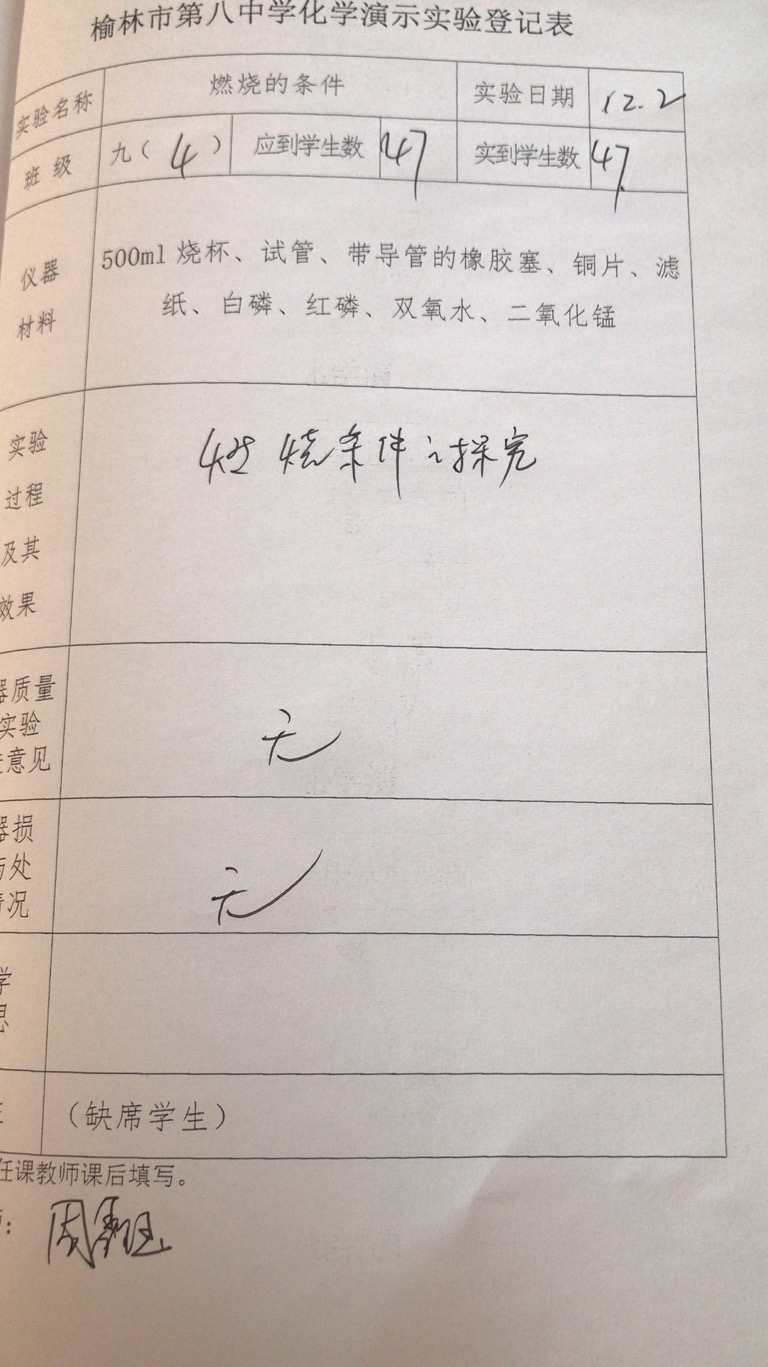 榆林市第八中学化学演示实验登记表
实验名称 燃烧的条件 实验日期 12.2
班 级 九( 4 ) 应到学生数 47 实到学生数 47
仪器
材料
500ml 烧杯、试管、带导管的橡胶塞、铜片、滤
纸、白磷、红磷、双氧水、二氧化锰
实验
过程
及其
效果
燃烧条件之探究
器质量
实验
意见
无
器损
与处
情况
无
学
思
(缺席学生)
任课教师课后填写。
周